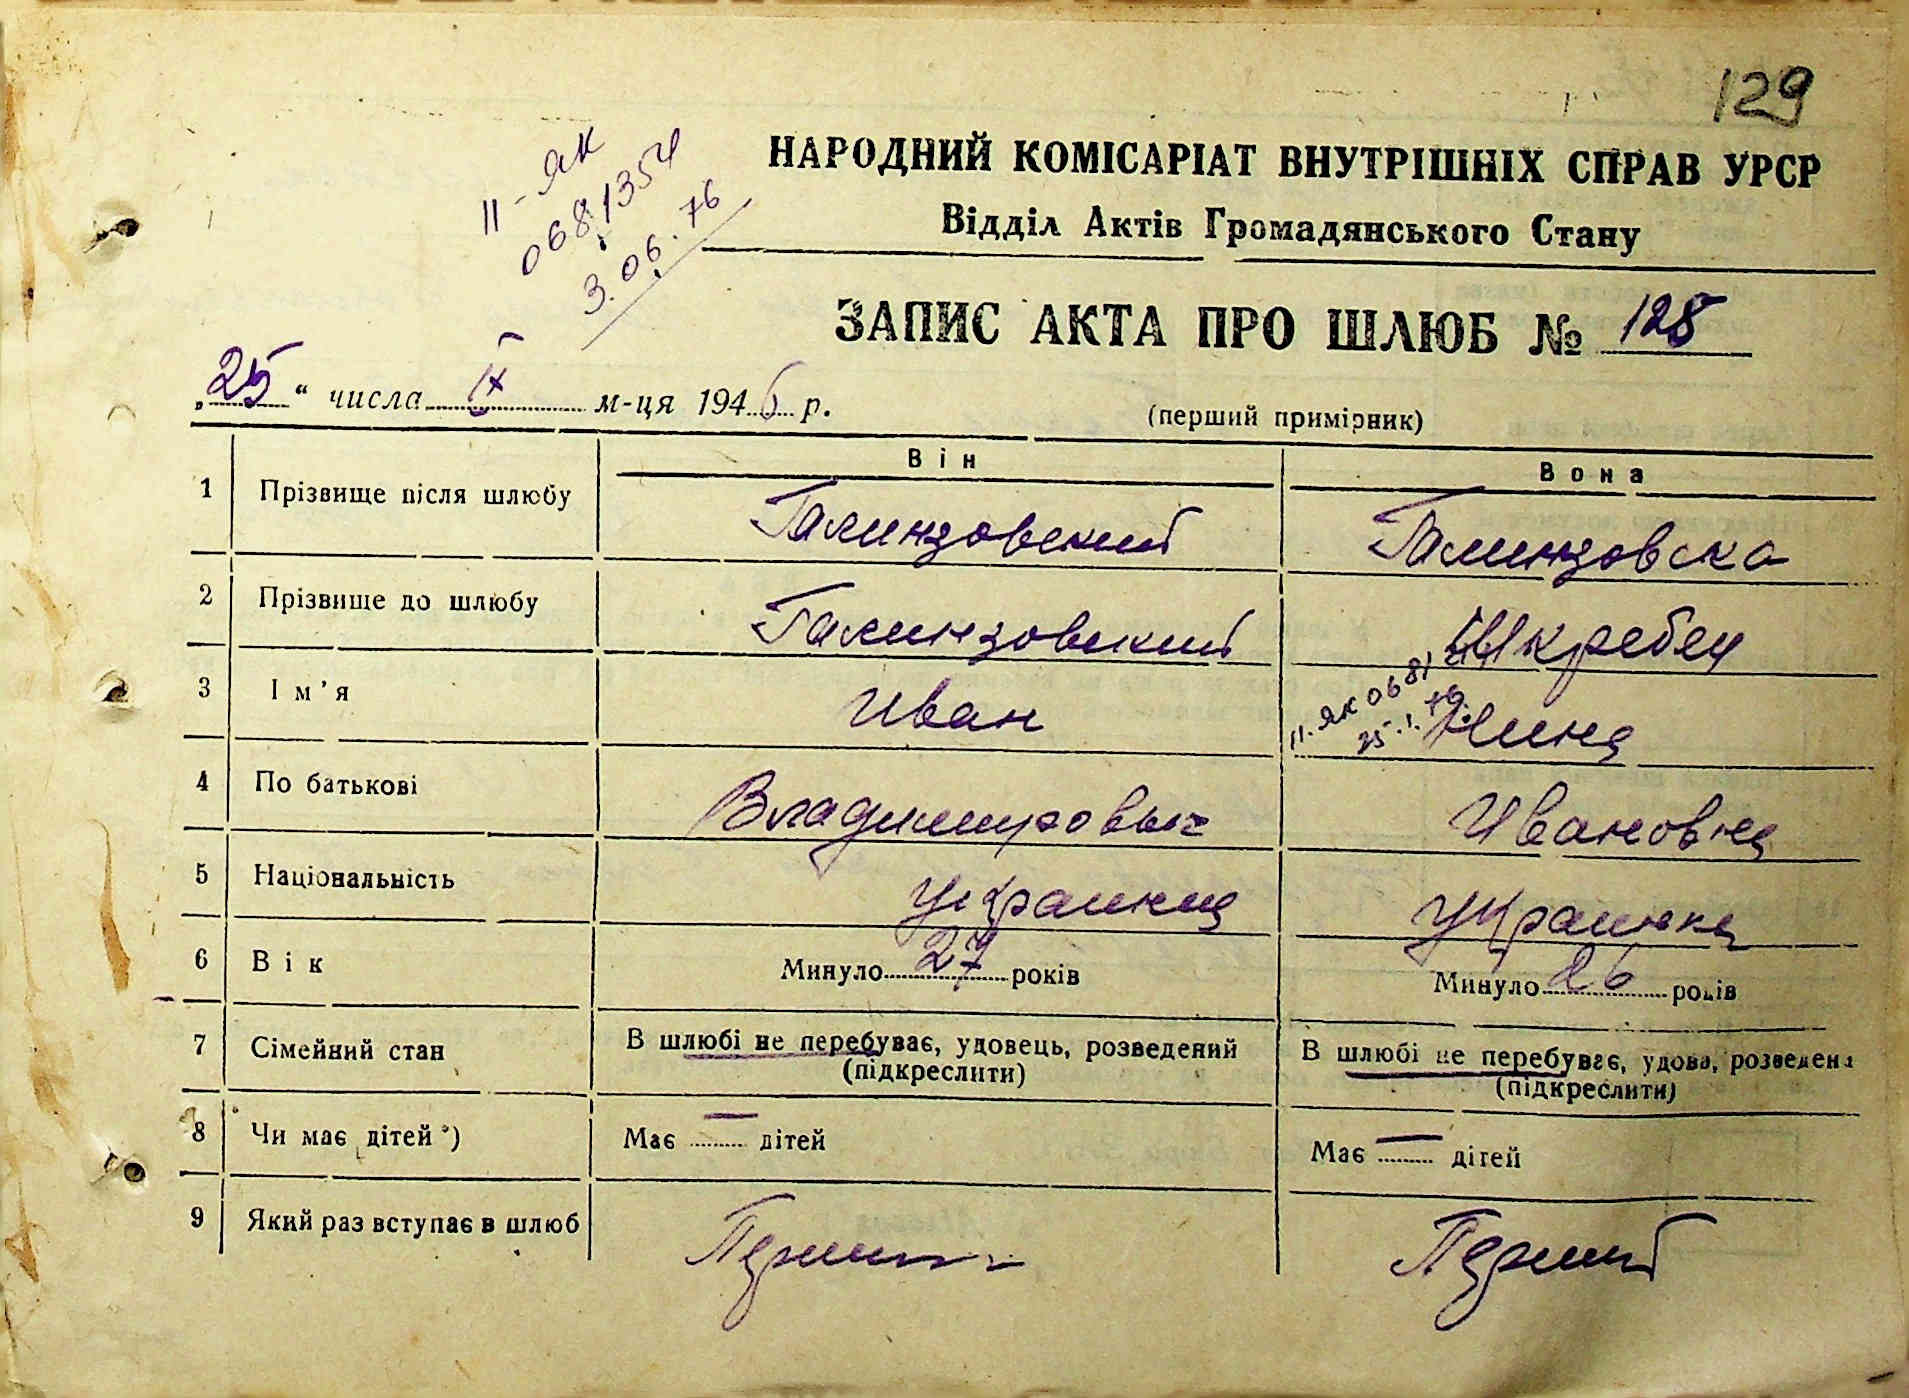 129
II-ЯК
0681354
3.06.76
НАРОДНИЙ КОМІСАРІАТ ВНУТРІШНІХ СПРАВ УРСР
Відділ Актів Громадянського Стану
ЗАПИС АКТА ПРО ШЛЮБ № 128
„25“ числа м-ця 1946 р.
(перший примірник)
Він Вона
1 Прізвище після шлюбу Галинзовский Галинзовска
2 Прізвище до шлюбу Галинзовский Шкребец
3 Ім’я Иван Нина
II. ЯК 0681
25.I.
4 По батькові Владимировыч Ивановна
5 Національність Украинец Украинка
6 Вік Минуло 27 років Минуло 26 років
7 Сімейний стан В шлюбі не перебуває, удовець, розведений (підкреслити) В шлюбі не перебуває, удова, розведена (підкреслити)
8 Чи має дітей *) Має — дітей Має — дітей
9 Який раз вступає в шлюб Перший Перший